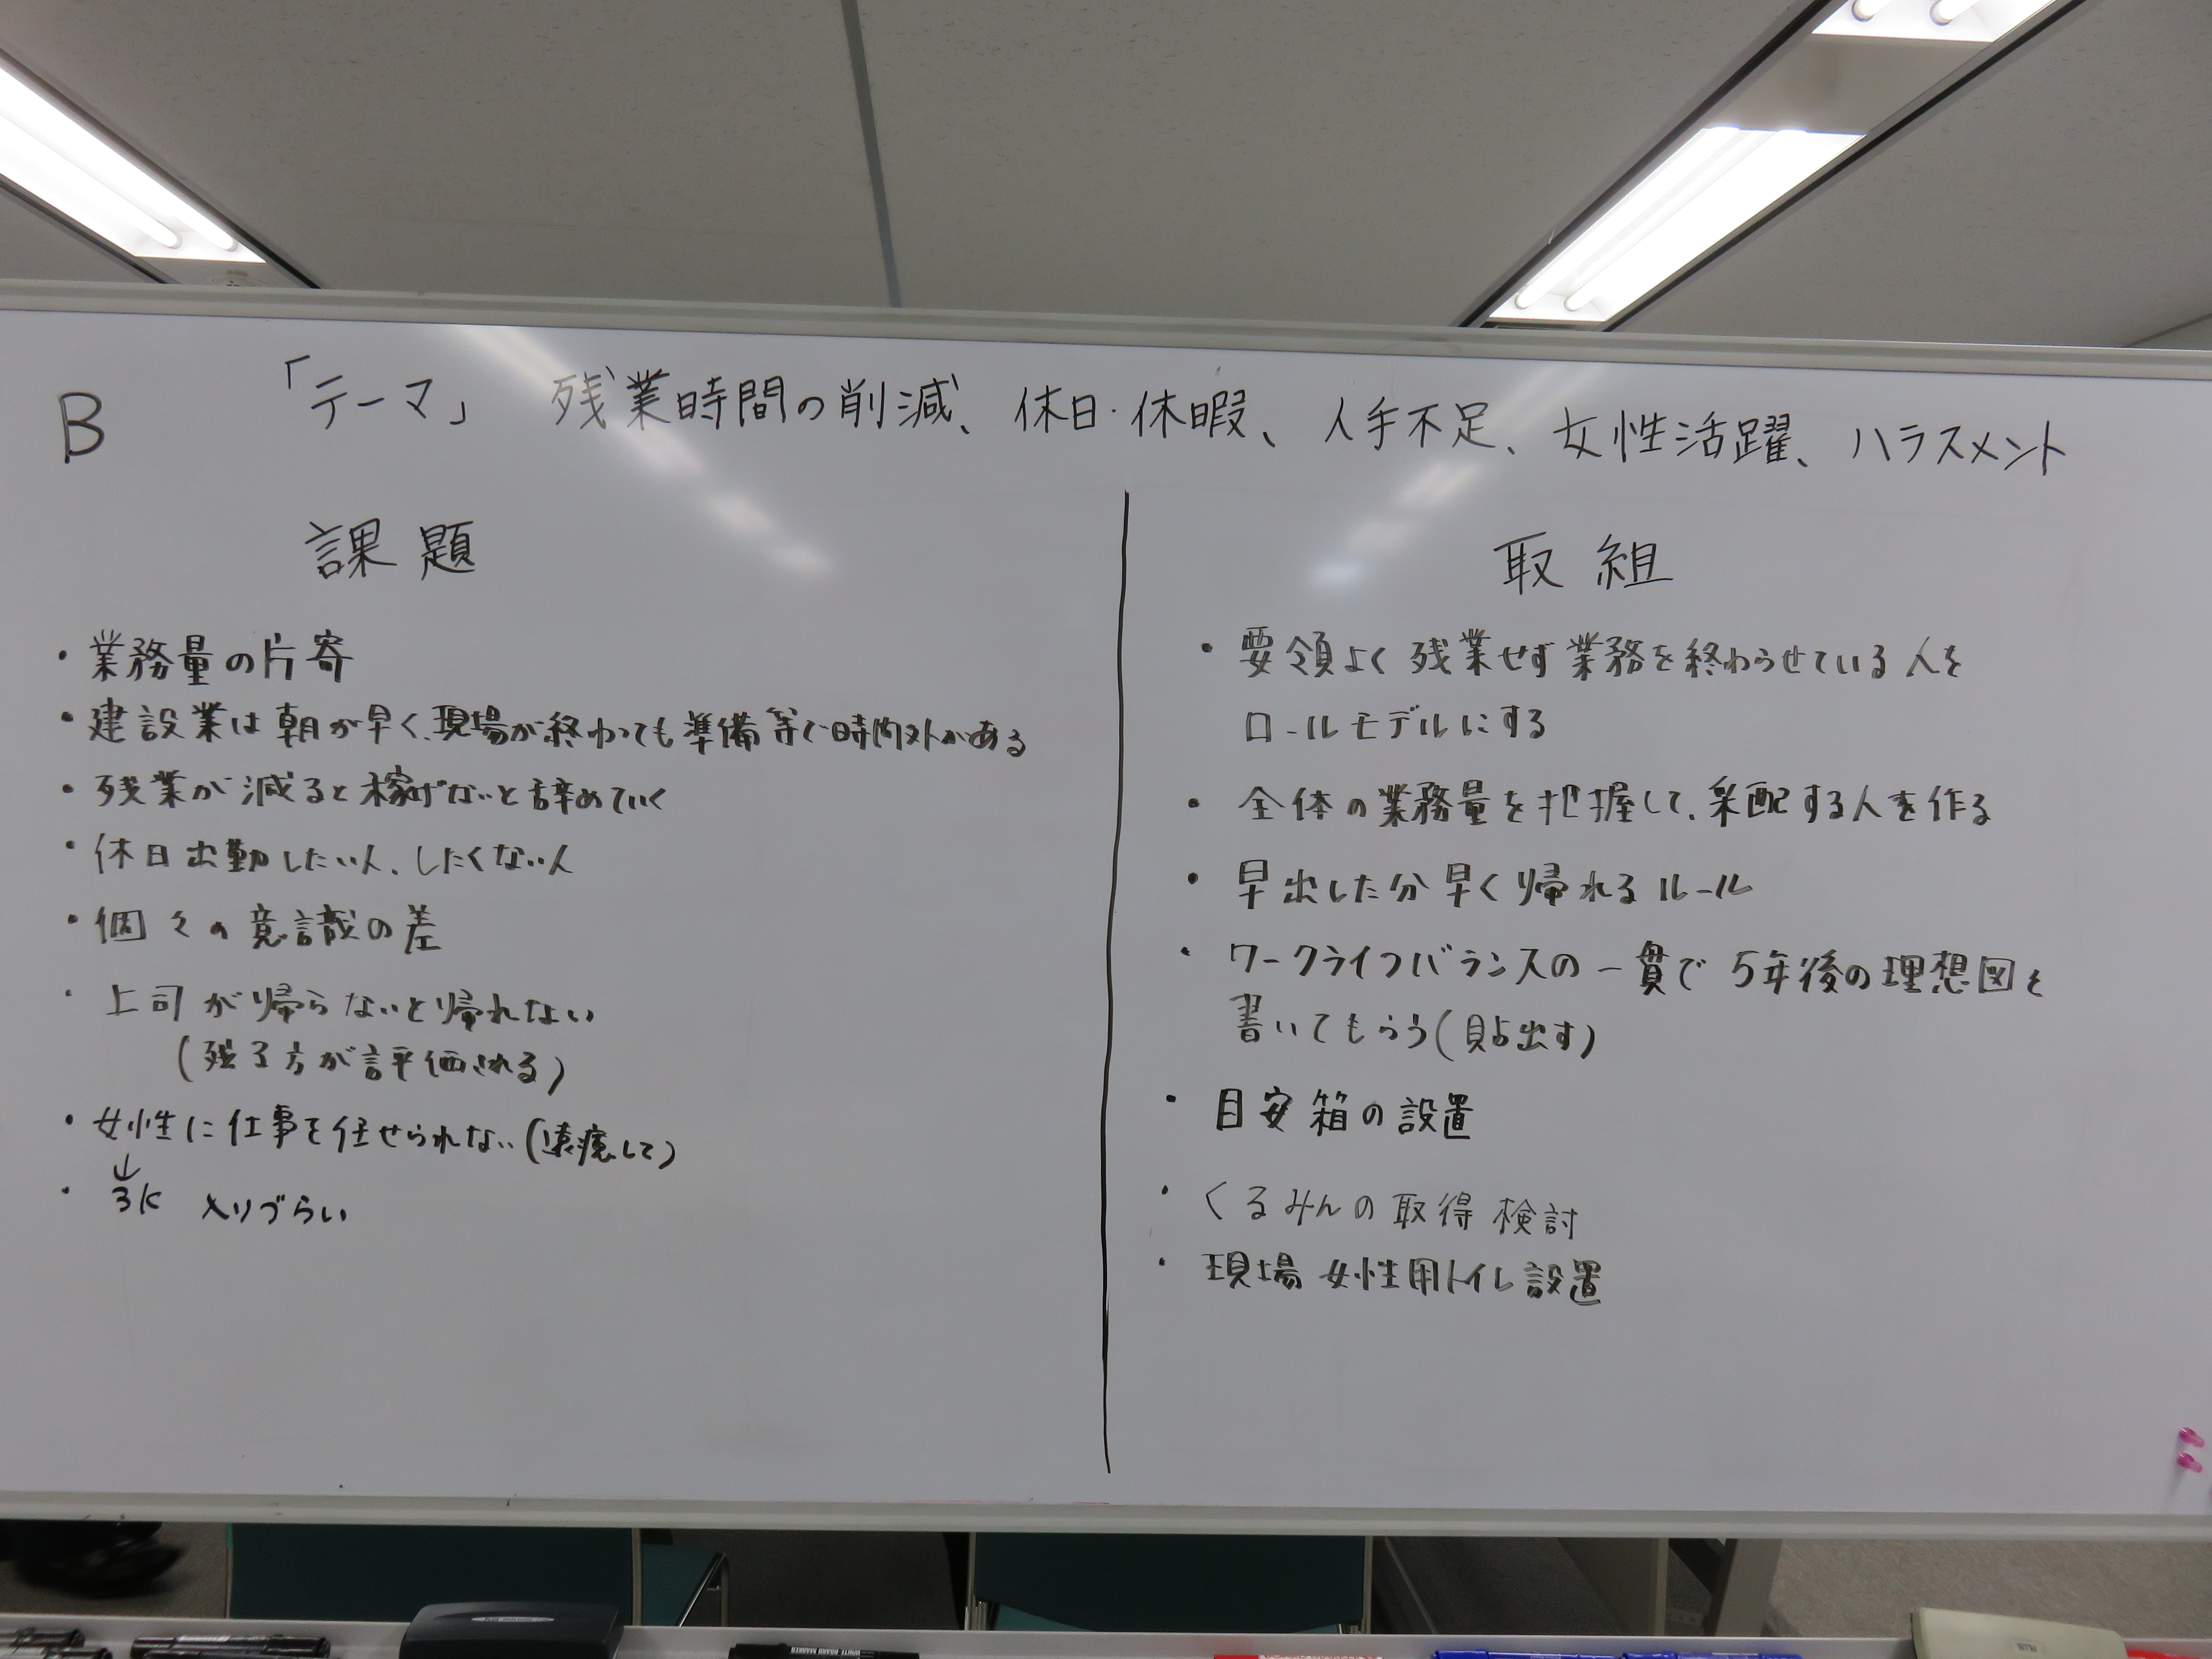 B
「テーマ」 残業時間の削減、休日・休暇、人手不足、女性活躍、ハラスメント
課題
・業務量の片寄
・建設業は朝が早く、現場が終わっても準備等で時間外がある
・残業が減ると稼げないと辞めていく
・休日出勤したい人、したくない人
・個々の意識の差
・上司が帰らないと帰れない
(残る方が評価される)
・女性に仕事を任せられない(遠慮して)
↓
・3K 入りづらい
取組
・要領よく残業せず業務を終わらせている人を
ロールモデルにする
・全体の業務量を把握して、采配する人を作る
・早出した分早く帰れるルール
・ワークライフバランスの一貫で5年後の理想図を
書いてもらう(貼出す)
・目安箱の設置
・くるみんの取得検討
・現場女性用トイレ設置
WHITE BOARD MARKER
PLUS